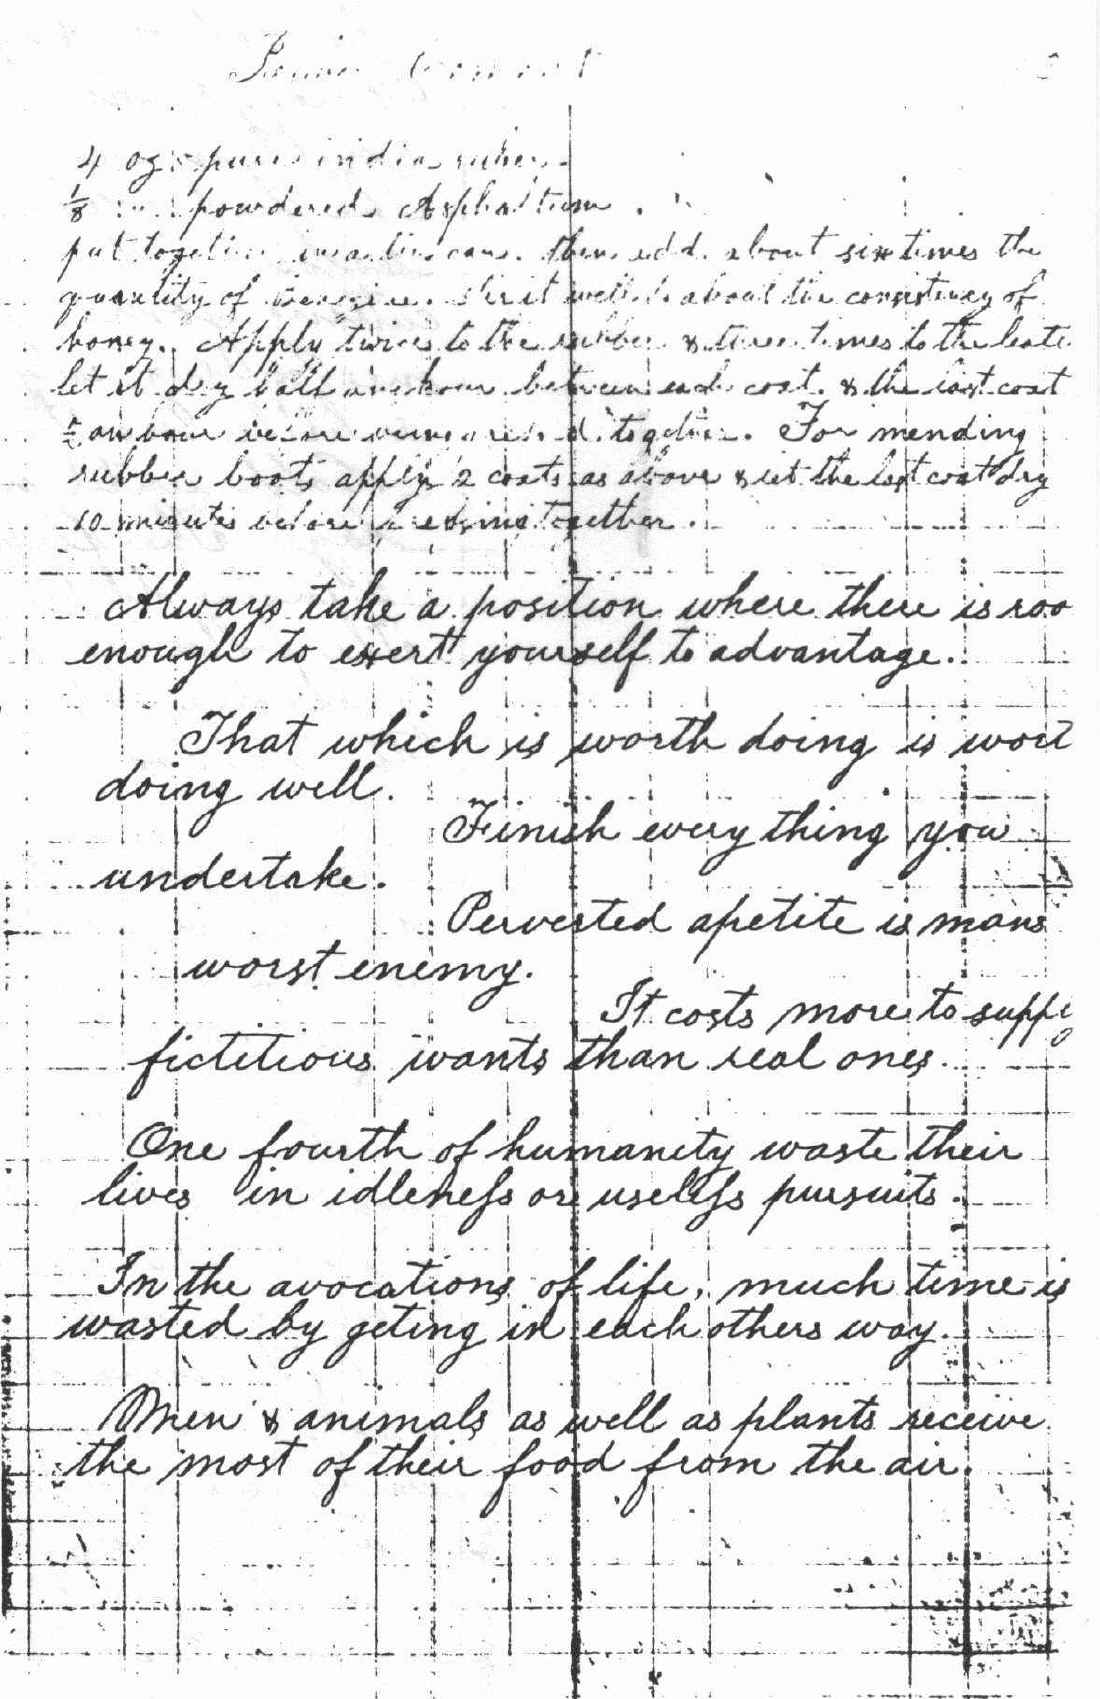 Cement
4 oz pure india ruber
1/8 " powdered Asphaltum.
put together in a tin can. then add about six times the
quantity of benzine. Stir it well to about the consistency of
honey. Apply twice to the rubber & three times to the leate
let it dry half an hour between each coat. & the last coat
an hour before being pressed together. For mending
rubber boots apply 2 coats as above & let the last coat dry
10 minutes before pressing together.
Always take a position where there is roo
enough to exert yourself to advantage.
That which is worth doing is wort
doing well.
Finish every thing you
undertake.
Perverted apetite is mans
worst enemy.
It costs more to supply
fictitious wants than real ones.
One fourth of humanity waste their
lives in idleness or useless pursuits.
In the avocations of life, much time is
wasted by geting in each others way.
Men & animals as well as plants receive
the most of their food from the air.